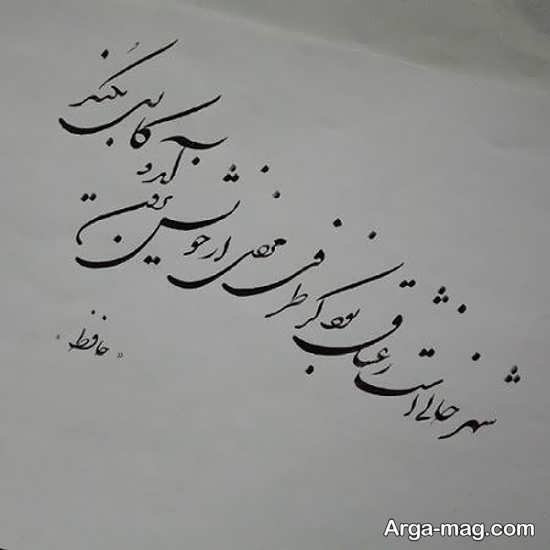 شهر خالی است ز عشاق بود کز طرفی
مردی از خویش برون آید و کاری بکند
"حافظ"
Arga-mag.com